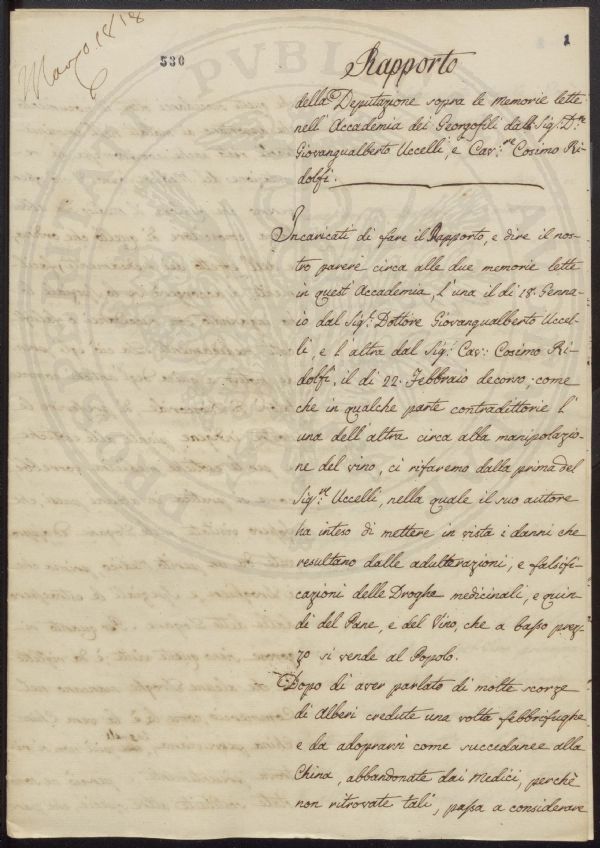 Marzo 1818
530
1
Rapporto
della Deputazione sopra le Memorie lette
nell' Accademia dei Georgofili dalli Sig.i D.re
Giovangualberto Uccelli, e Cav:re Cosimo Ri-
dolfi.
Incaricati di fare il Rapporto, e dire il nos-
tro parere circa alle due memorie lette
in quest' Accademia, l'una il di 18. Genna-
io dal Sig.r Dottore Giovangualberto Uccel-
li, e l'altra dal Sig.r Cav: Cosimo Ri-
dolfi, il di 22. Febbraio decorso; come
che in qualche parte contradittorie l'
una dell' altra circa alla manipolazio-
ne del vino, ci rifaremo dalla prima del
Sig.re Uccelli, nella quale il suo autore
ha inteso di mettere in vista i danni che
resultano dalle adulterazioni, e falsifi-
cazioni delle Droghe medicinali, e quin-
di del Pane, e del Vino, che a basso prez-
zo si vende al Popolo.
Dopo di aver parlato di molte scorze
di Alberi credute una volta febbrifughe
e da adoprarsi come succedanee alla
China, abbandonate dai Medici, perchè
non ritrovate tali, passa a considerare
PROSPERITATI PUBLICAE